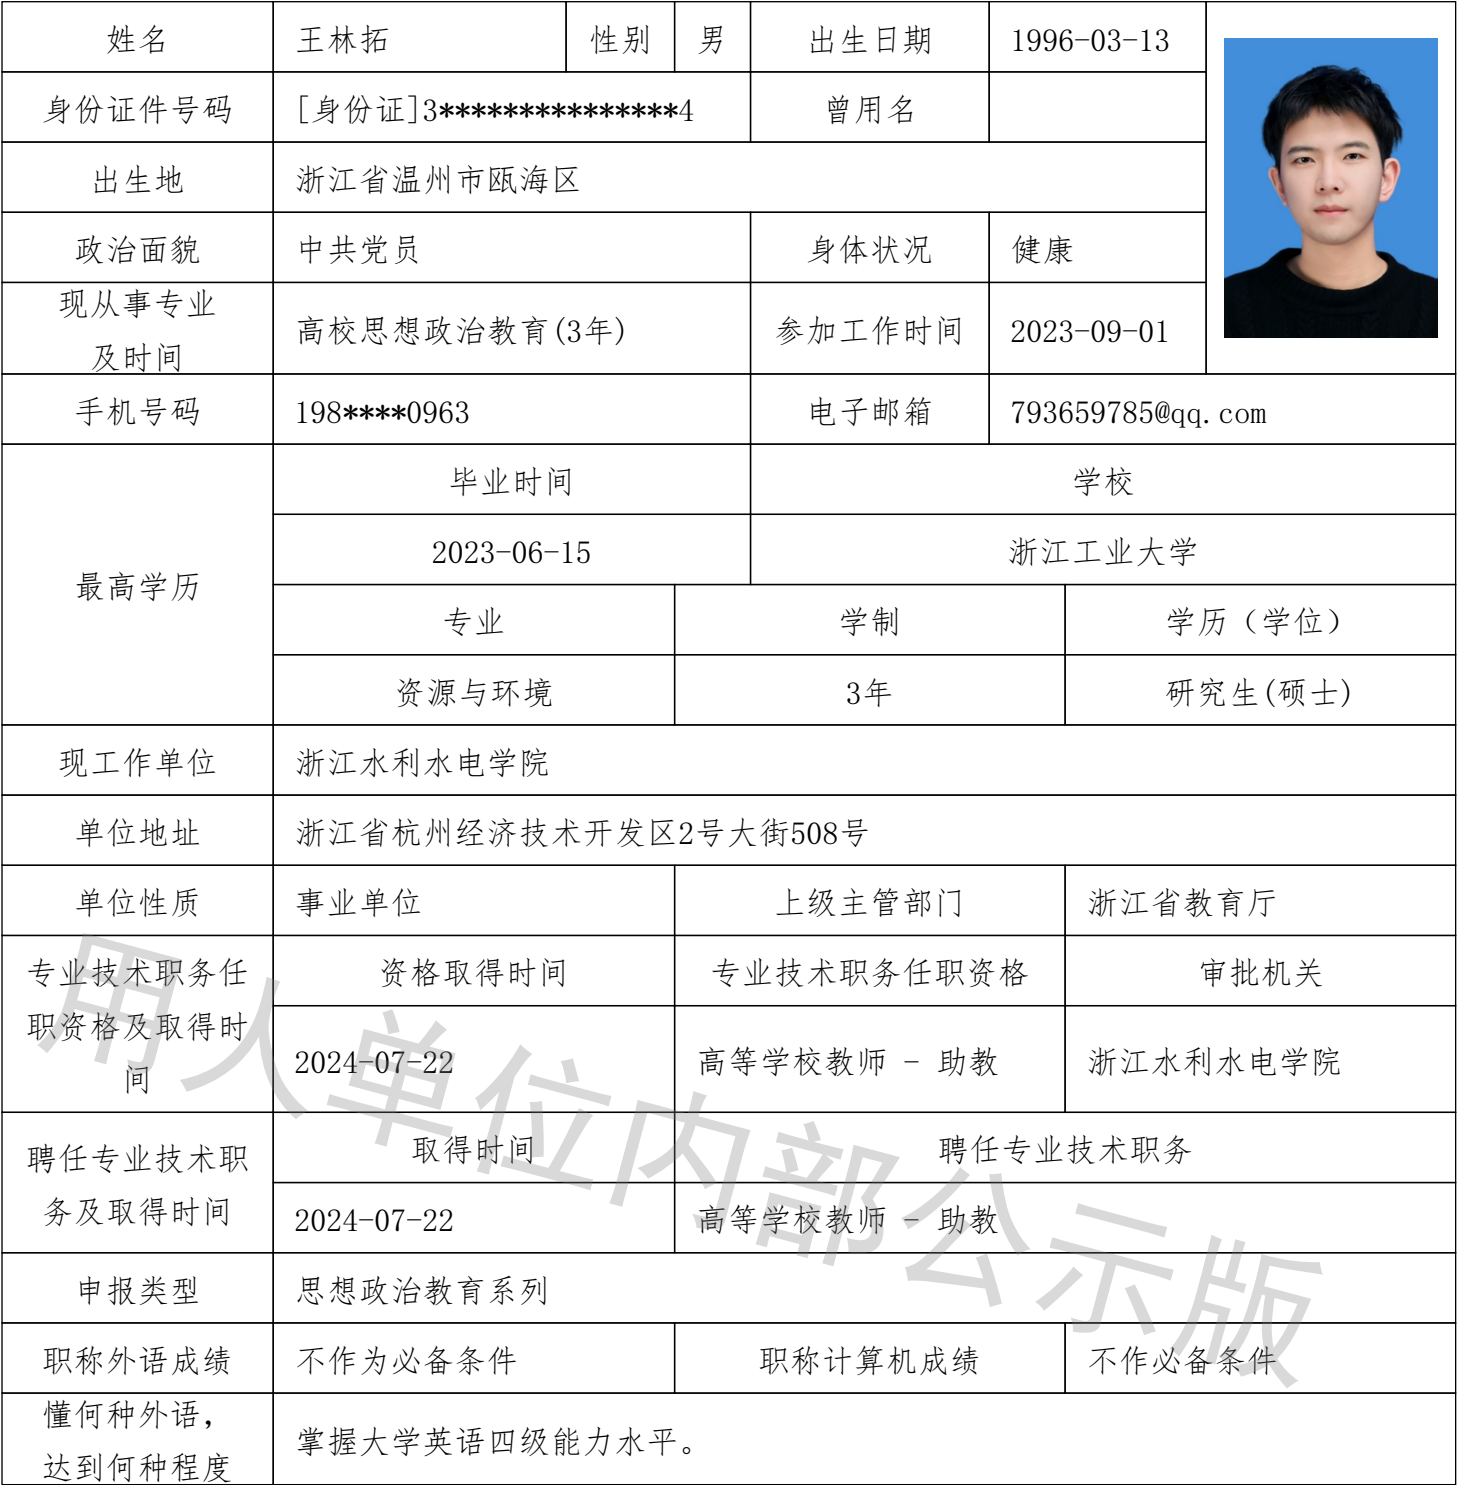 姓名 王林拓 性别 男 出生日期 1996-03-13
身份证件号码 [身份证]3***************4 曾用名
出生地 浙江省温州市瓯海区
政治面貌 中共党员 身体状况 健康
现从事专业
及时间
高校思想政治教育(3年) 参加工作时间 2023-09-01
手机号码 198****0963 电子邮箱 793659785@qq.com
最高学历
毕业时间 学校
2023-06-15 浙江工业大学
专业 学制 学历（学位）
资源与环境 3年 研究生(硕士)
现工作单位 浙江水利水电学院
单位地址 浙江省杭州经济技术开发区2号大街508号
单位性质 事业单位 上级主管部门 浙江省教育厅
专业技术职务任
职资格及取得时
间
资格取得时间 专业技术职务任职资格 审批机关
2024-07-22 高等学校教师 - 助教 浙江水利水电学院
聘任专业技术职
务及取得时间
取得时间 聘任专业技术职务
2024-07-22 高等学校教师 - 助教
申报类型 思想政治教育系列
职称外语成绩 不作为必备条件 职称计算机成绩 不作必备条件
懂何种外语，
达到何种程度
掌握大学英语四级能力水平。
用人单位内部公示版